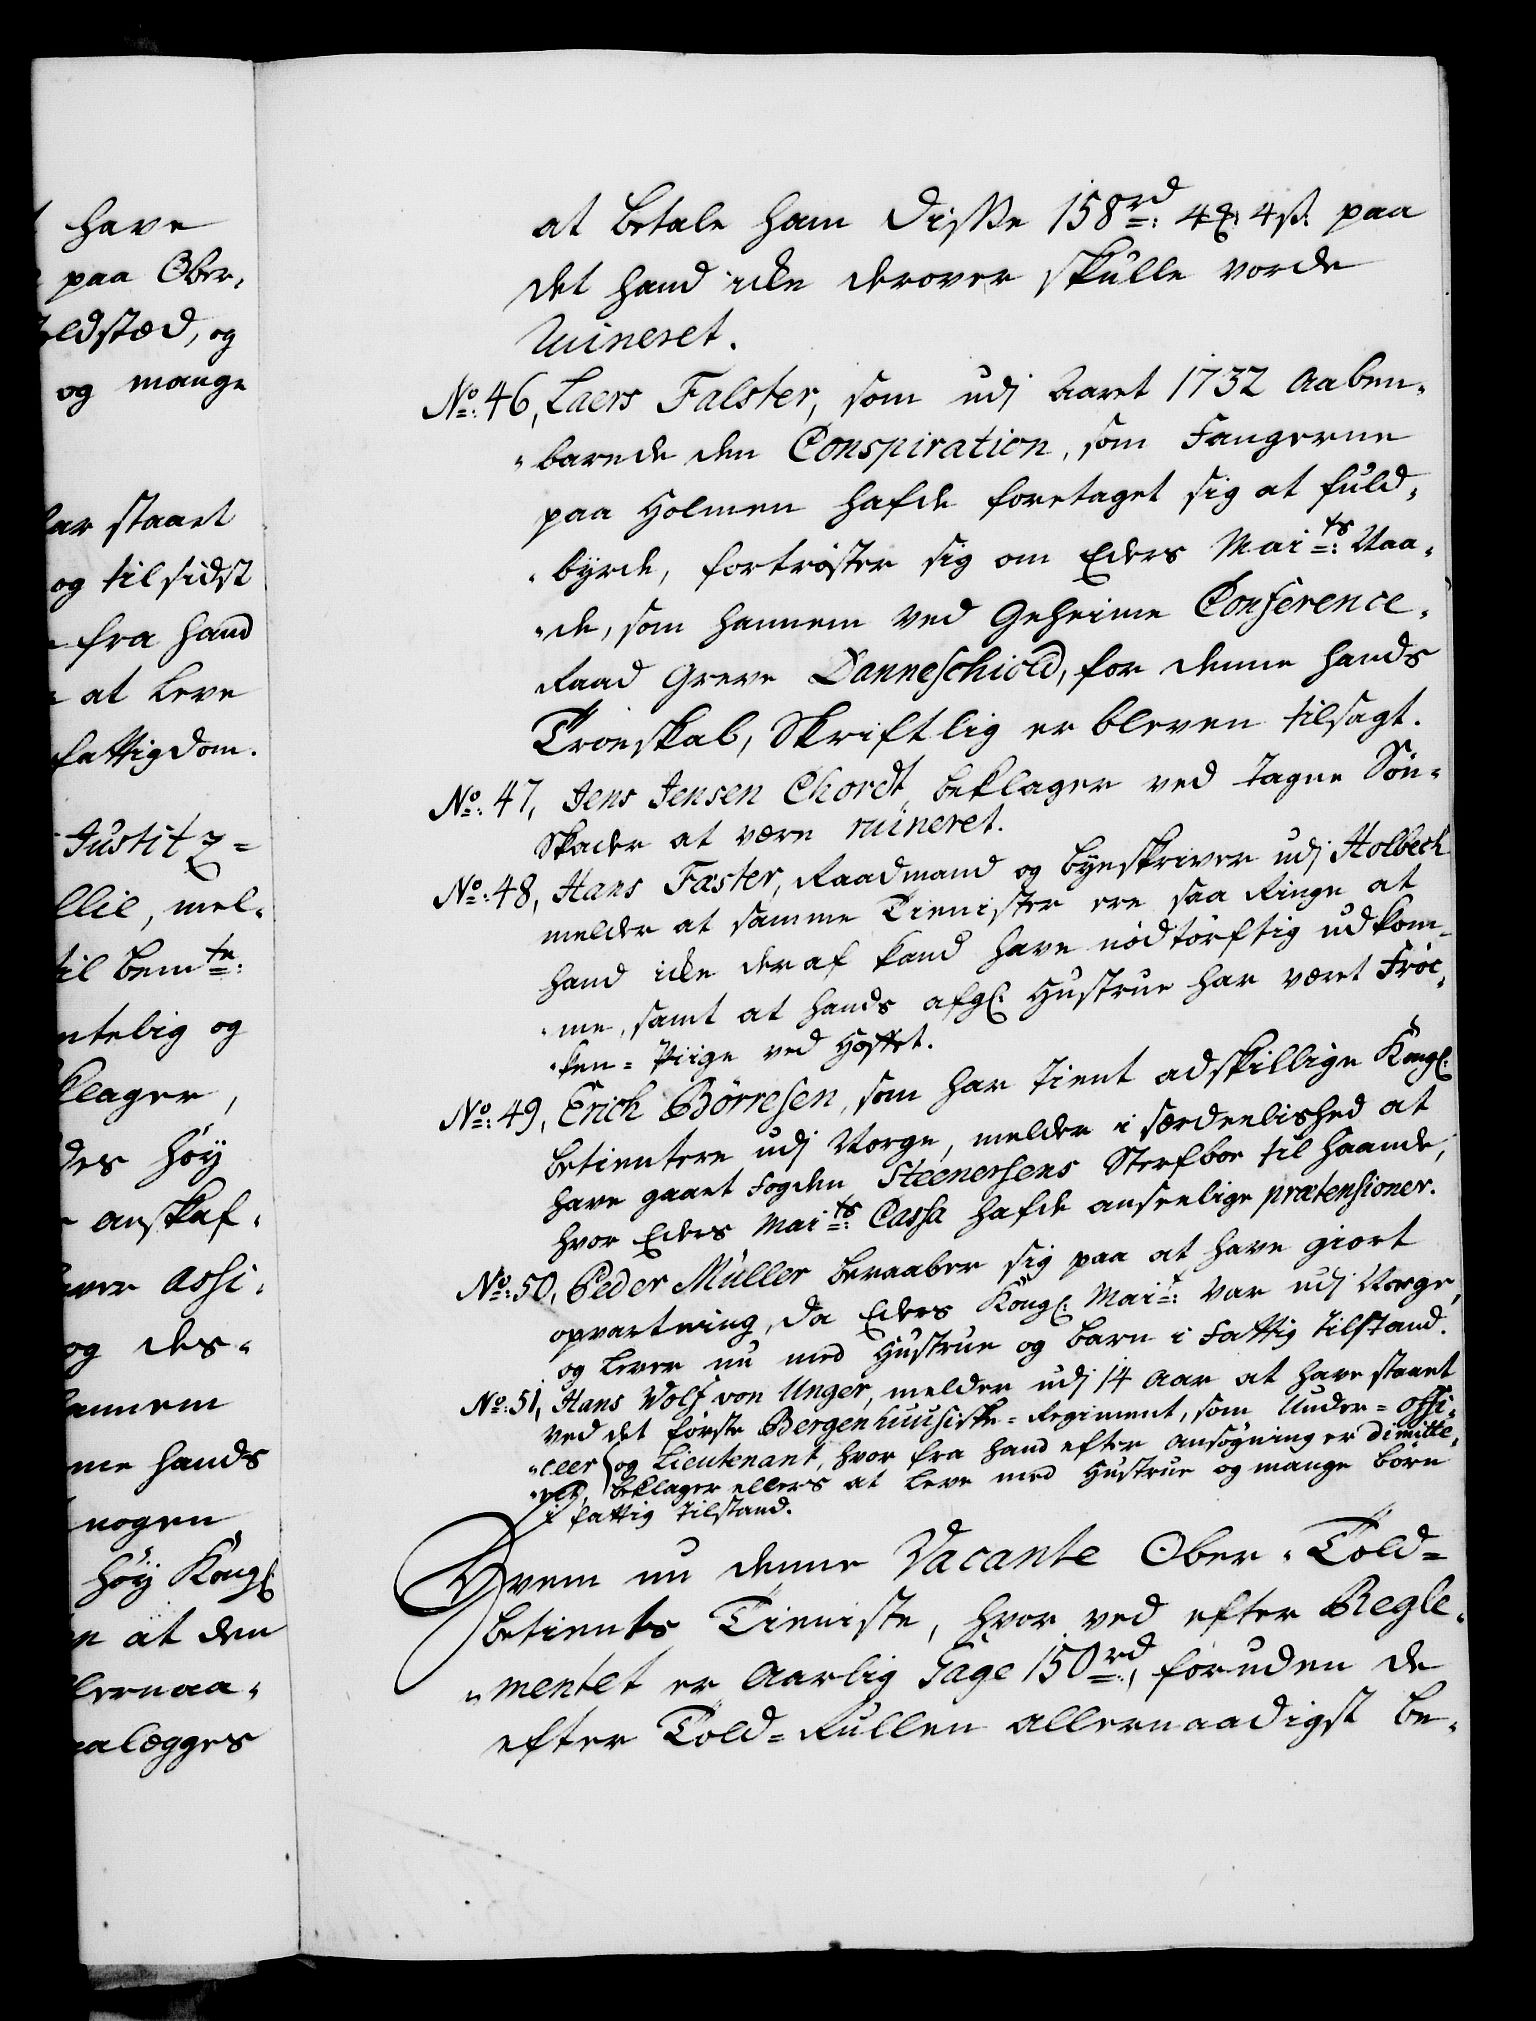 have
paa Ober,
oldstæd, og
og mange
har staaet
og til sidst
fra hand
at leve
fattigdom.
Justitz=
llie, mel,
til bemte:
ntelig og
klager,
des høy
anskaf,
Assi,
og des,
hannem
me hands
nogen
høy Kongl:
at den
llernaa,
alægges
at betale ham disse 158rd: 4 4ß: paa
det hand icke derover skulle vorde
ruineret.
No: 46, Laers Falster, som udj Aaret 1732 aaben,
,,barede den Conspiration, som Fangerne
paa Holmen hafde foretaget sig at fuld,
,,byrde, fortrøster sig om Eders Maits: Naa,
,,de, som hannem ved Geheime Conference,
Raad Greve Danneschiold, for denne hands
Troeskab, Skriftlig er bleven tilsagt.
No: 47, Jens Jensen Chordt, beklager ved tagne Søe,
Skader at være ruineret.
No: 48, Hans Fæster, Raadmand og byeskriver udj Holbech
melder at samme Tienister ere saa Ringe at
hand icke deraf kand have nødtørftig udkom,
,,me, samt at hands afgl: Hustrue har været Frøe,
,,ken=Piige ved Hoffet.
No: 49, Erich Børresen, som har tient adskillige Kongl:
betientere udj Norge, melder i særdeelished at
have gaaet Fogden Steenersens Sterfboe til haande,
hvor Eders Maits: Cassa hafde anseelige prætensioner.
No: 50, Peder Müller beraaber sig paa at have giort
opvartning, da Eders Kongl: Mait: var udj Norge,
og lever nu med Hustrue og barn i Fattig tilstand.
No: 51, Hans Wolf von Unger, melder udj 14 Aar at have staaet
ved det første Bergenhuusiske=Regiment, som Under=Offi,
,,ceer og Lieutenant, hvor fra hand efter ansøgning er dimitte,
,,ret, beklager ellers at leve med Hustrue og mange børn
i fattig tilstand.
Hvem nu denne Vacante Ober=Told=
betients Tieniste, hvor ved efter Regle,
,,mentet er Aarlig Gage 150rd:, foruden de
efter Told=Rullen allernaadigst be,